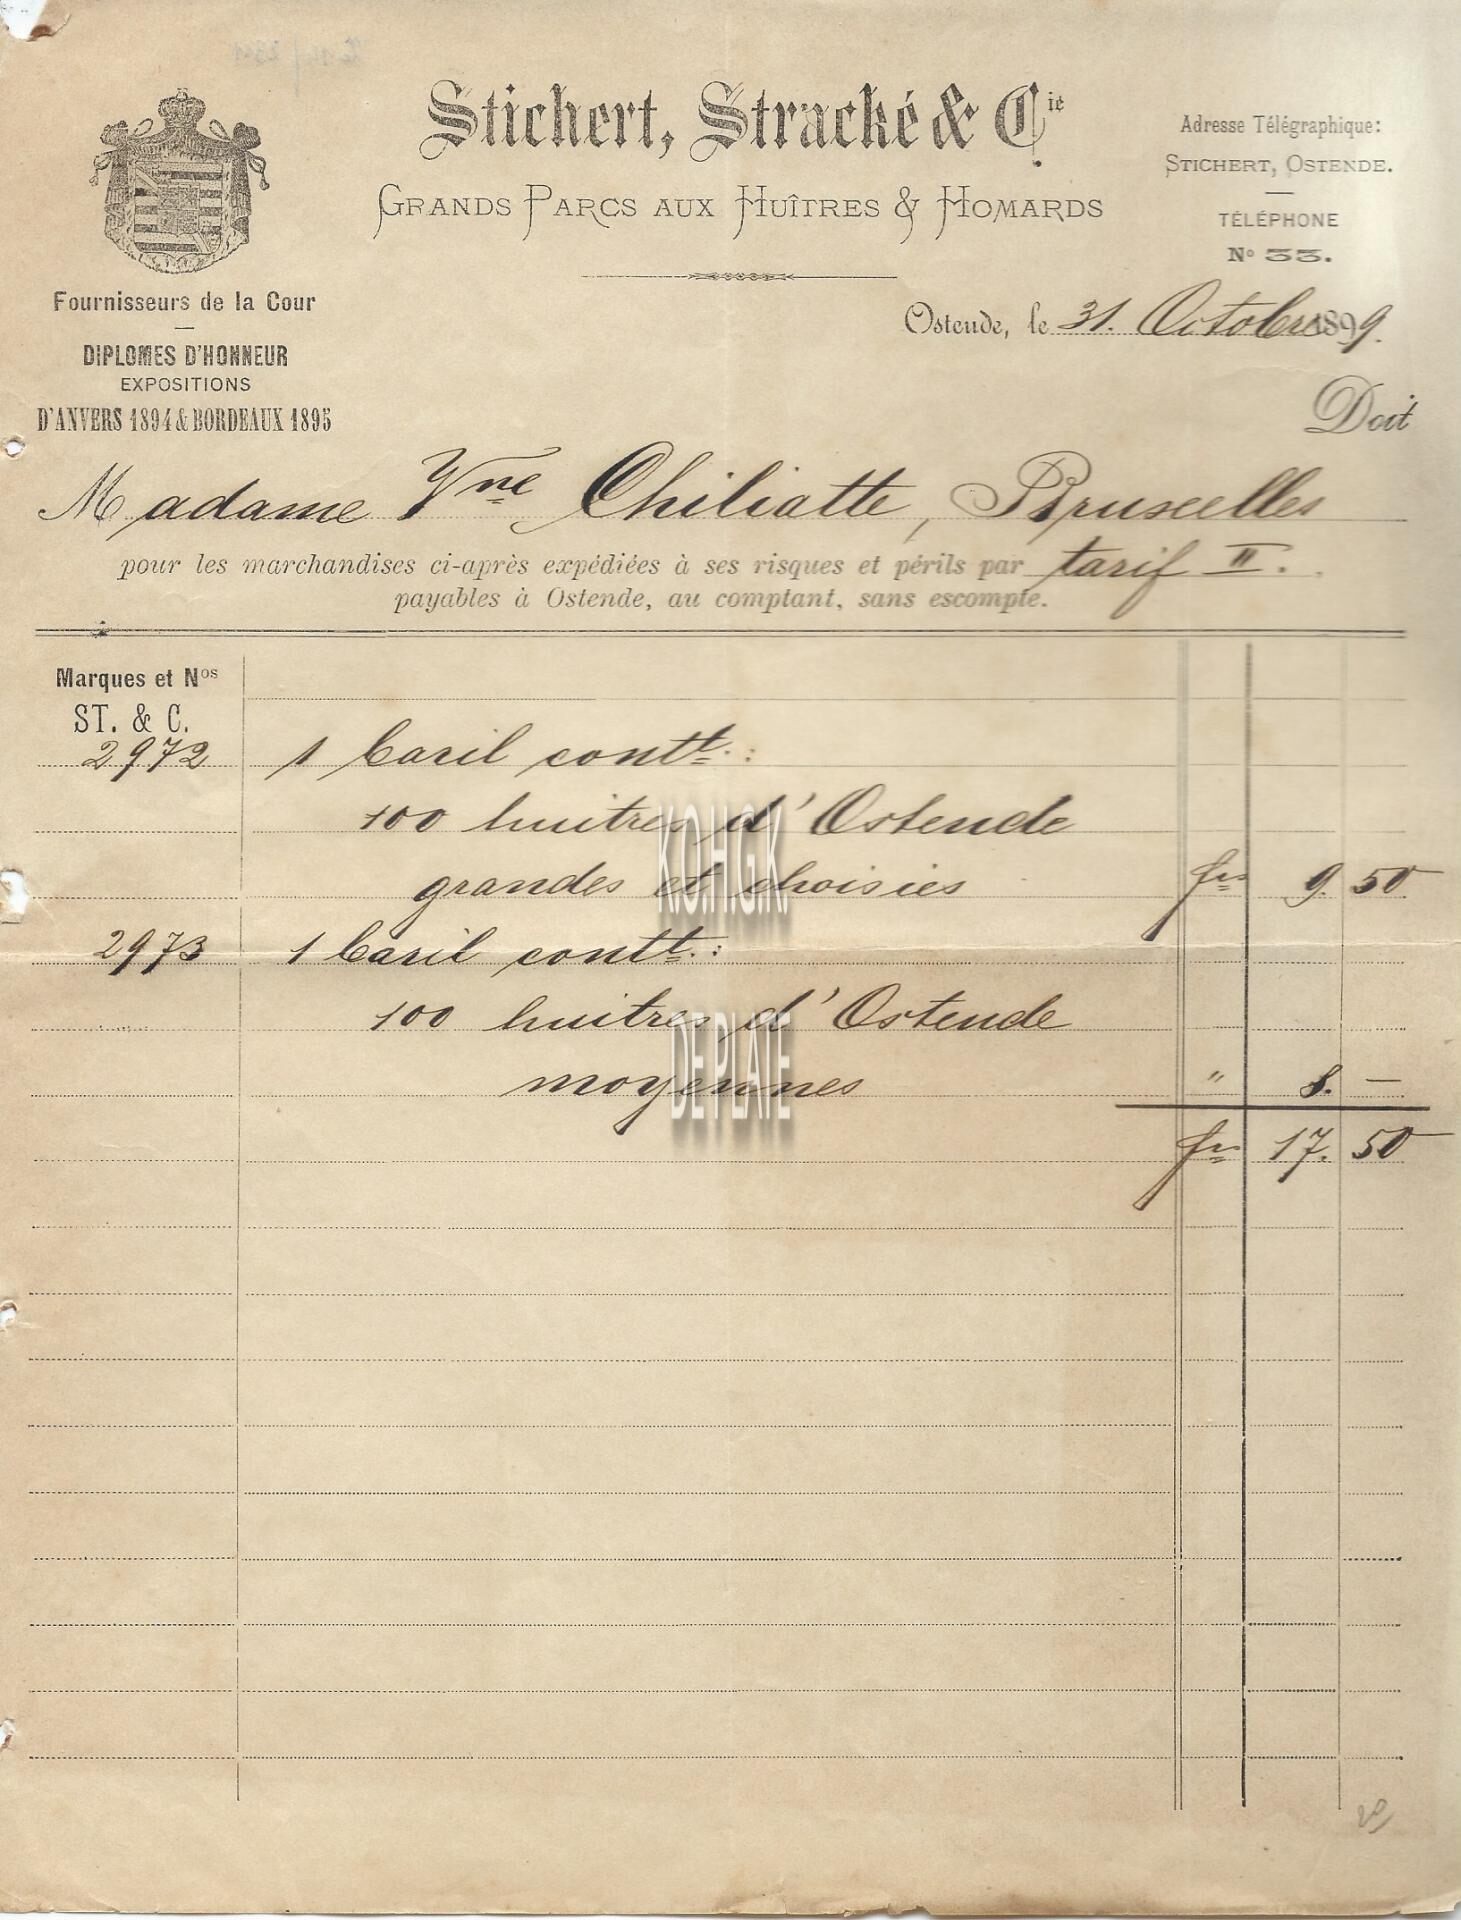 Stichert, Stracké & Cie
GRANDS PARCS AUX HUÎTRES & HOMARDS
Adresse Télégraphique:
STICHERT, OSTENDE.
TÉLÉPHONE
No 33.
Fournisseurs de la Cour
DIPLOMES D'HONNEUR
EXPOSITIONS
D'ANVERS 1894 & BORDEAUX 1895
Ostende, le 31. Octobre 1899.
Doit
Madame Vve Chiliatte, Bruxelles
pour les marchandises ci-après expédiées à ses risques et périls par tarif II.
payables à Ostende, au comptant, sans escompte.
Marques et Nos
ST. & C.
2972 1 baril contt:
100 huitres d'Ostende
grandes et choisies frs 9. 50
2973 1 baril contt:
100 huitres d'Ostende
moyennes " 8. —
frs 17. 50
K.O.H.G.K.
DE PLATE